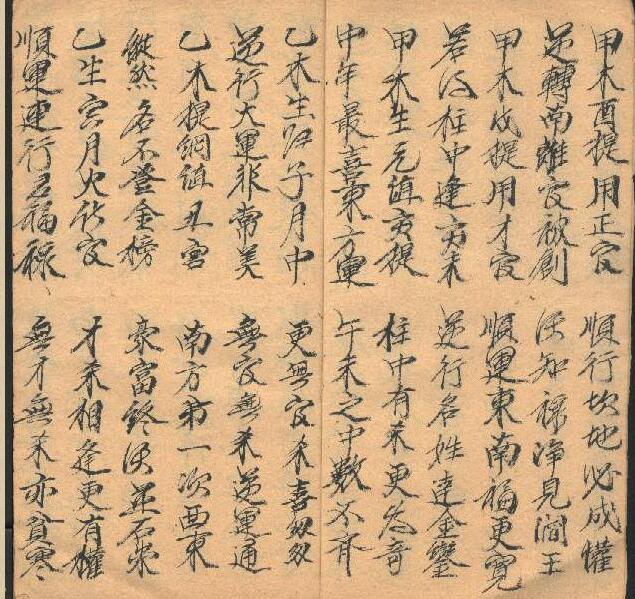 甲木酉提用正官 順行坎地必成權
逆轉南離官被創 須知祿淨見閻王
甲木戌提用才官 順運東南福更寬
若得柱中逢亥未 逆行名姓達金鑾
甲木生元值亥提 柱中有未更為奇
中年最喜東方運 午未之中數不齊
乙木生臨子月中 更無官未喜匆匆
逆行大運非常美 無官無未逆運通
乙木提綱值丑宮 南方才一次西東
縱然名不登金榜 豪富終須並石崇
乙生寅月火伤官 才未相逢更有權
順運運行君福祿 無才無未亦貧寒